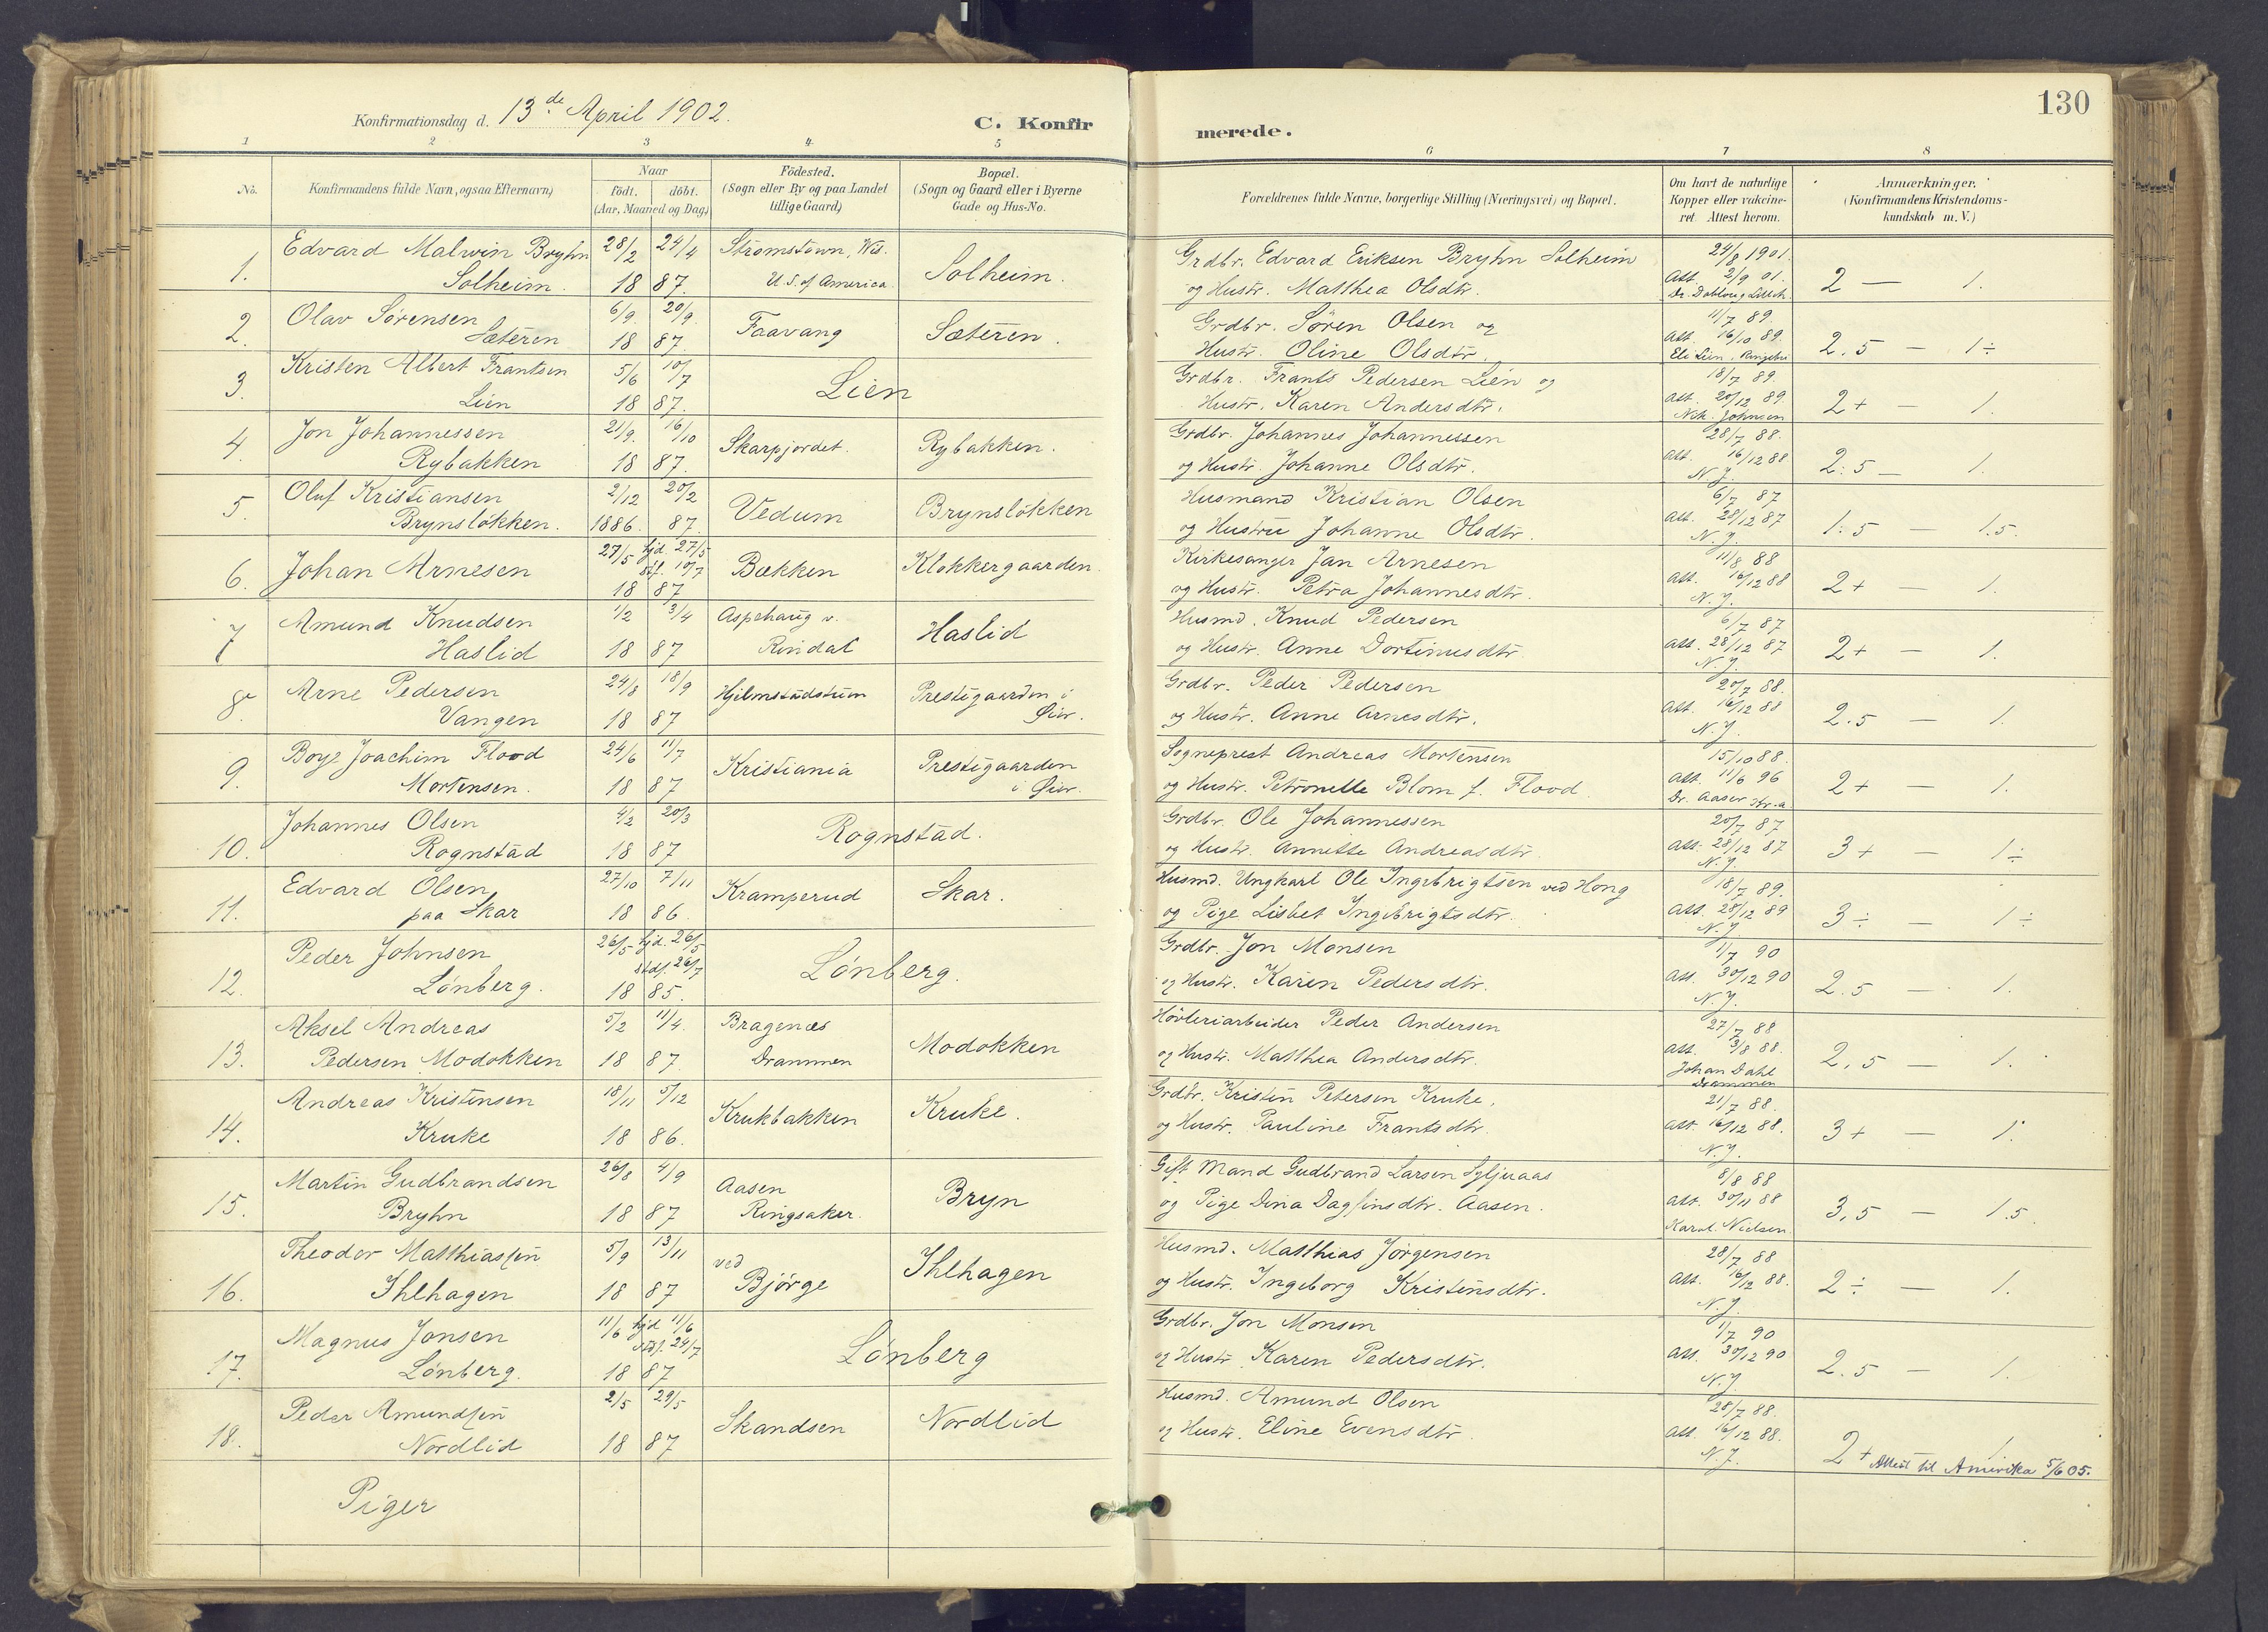 Konfirmationsdag d. 13de April 1902.
C. Konfirmerede.
130
1 2 3 4 5 6 7 8
No. Konfirmandens fulde Navn, ogsaa Efternavn) Naar født. døbt. (Aar, Maaned og Dag) Födested. (Sogn eller By og paa Landet tillige Gaard) Bopæl. (Sogn og Gaard eller i Byerne Gade og Hus-No. Forældrenes fulde Navne, borgerlige Stilling (Næringsvei) og Bopæl. Om havt de naturlige Kopper eller vakcineret Attest herom. Anmærkninger. (Konfirmandens Kristendomskundskab m. V.)
Edvard Malvin Bryhn 28/2 24/4 Strømstown, Wis. Grdbr. Edvard Eriksen Bryhn Solheim 24/8 1901.
1. Solheim. 18 87. U.S. of America. Solheim. og Hustr. Matthea Olsdtr. Att. 2/9 01. 2 — 1.
Olav Sørensen 6/9. 20/9. Grdbr. Sören Olsen og 11/7 89.
2. Sæteren 18 87. Faavang Sæteren. Hustr. Oline Olsdtr. Att. 16/10 89. 2.5 — 1÷
Kristen Albert Frantsen 5/6 10/7 Grdbr. Frants Pedersen Lien og 18/7 89.
3. Lien 18 87. Lien Hustr. Karen Andersdtr. Att. 20/12 89. Nik. Johnsen 2+ — 1.
Jon Johannessen 21/9. 16/10 Grdbr. Johannes Johannessen 28/7 88.
4. Rybakken 18 87. Skarpjordet. Rybakken. og Hustr. Johanne Olsdtr. Att. 16/12 88. N.J. 2.5 — 1.
Oluf Kristiansen 2/12 20/2 Husmand Kristian Olsen 6/7 87
5. Brynsløkken. 1886. 87. Vedum Brynsløkken og Hustru Johanne Olsdtr. Att. 28/12 87 N.J. 1.5 — 1.5.
27/5 hjd. 27/5 stf. 10/7 Kirkesanger Jan Arnesen 11/8 88
6. Johan Arnesen 18 87 Bækken Klokkergaarden. og Hustr. Petra Johannesdtr. Att. 16/12 88 N.J. 2+ — 1.
Amund Knudsen 1/2 3/4 Aspehaug v. Husmd. Knud Pedersen 6/7 87
7 Haslid 18 87 Rindal Haslid og Hustr. Anne Dortinusdtr. Att. 28/12 87 N.J. 2+ — 1.
Arne Pedersen 24/8 18/9 Hjelmstadstuen Prestegaarden i Grdbr. Peder Pedersen 20/7 88.
8. Vangen 18 87 Øier. og Hustr. Anne Arnesdtr. Att. 16/12 88 N.J. 2.5 — 1.
Boye Joachim Flood 24/6 11/7 Kristiania Prestegaarden Sogneprest Andreas Mortensen 15/10 88.
9. Mortensen. 18 87 i Øier. og Hustr. Petronelle Blom f. Flood Att. 11/6 96 Dr. Aaser Kr-a 2+ — 1.
Johannes Olsen 4/2 20/3 Grdbr. Ole Johannessen 20/7 87
10. Rognstad 18 87 Rognstad. og Hustr. Annette Andreasdtr. Att. 28/12 87 N.J. 3+ — 1÷
Edvard Olsen 27/10 7/11 Kramperud Husmd. Ungkarl Ole Ingebrigtsen ved Hong 18/7 89.
11. paa Skar 18 86. Skar. og Pige Lisbet Ingebrigtsdtr. Att. 28/12 89 N.J. 3÷ — 1÷
Peder Johnsen 26/5 hjd. 26/5 stdf. 26/7 Grdbr. Jon Monsen 1/7 90
12. Lønberg. 18 85. Lønberg. og Hustr. Karen Pedersdtr. Att. 30/12 90 N.J. 2.5 — 1.
Aksel Andreas 5/2 11/4. Bragenæs Høvleriarbeider Peder Andersen 27/7 88
13. Pedersen Modokken 18 87. Drammen Modokken og Hustr. Matthea Andersdtr. Att. 3/8 88. Johan Dahl Drammen 2.5 — 1.
Andreas Kristensen 18/11 5/12 Grdbr. Kristen Petersen Kruke, 21/7 88.
14. Kruke 18 86. Krukbakken Kruke. og Hustr. Pauline Frantsdtr. Att. 16/12 88. N.J. 3+ — 1.
Martin Gudbrandsen 26/8 4/9 Aasen Gift Mand Gudbrand Larsen Syljuaas 8/8 88
15. Bryhn 18 87 Ringsaker. Bryn og Pige Dina Dagfinsdtr. Aasen. Att. 30/11 88 Karol. Nielsen 3,5 — 1.5.
Theodor Matthiassen 5/9 13/11 ved Husmd. Matthias Jørgensen 28/7 88
16. Ihlhagen 18 87 Bjørge Ihlhagen og Hustr. Ingeborg Kristensdtr. Att. 16/12 88. N.J. 2÷ — 1.
Magnus Jonsen 11/6 hjd 11/6 stdf. 24/7 Grdbr. Jon Monsen 1/7 90
17. Lønberg. 18 87 Lønberg og Hustr Karen Pedersdtr. Att. 30/12 90 N.J. 2.5 — 1.
Peder Amundsen 2/5 29/5 Husmd. Amund Olsen 28/7 88.
18. Nordlid 18 87 Skandsen Nordlid og Hustr. Eline Evensdtr. Att. 16/12 88. N.J. 2+ — 1.
Attest til Amerika 5/6 05.
Piger